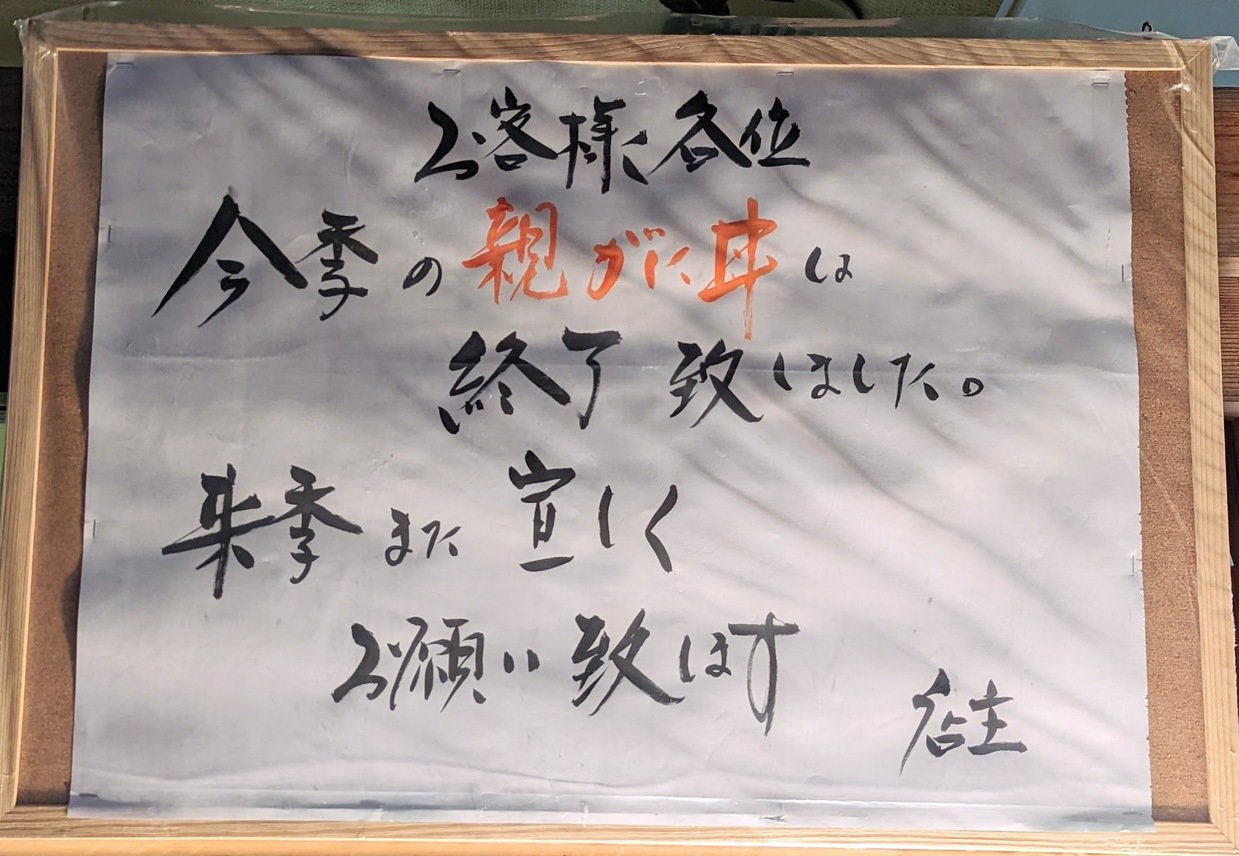 お客様各位
今季の親がに丼は
終了致しました。
来季また宜しく
お願い致します
店主